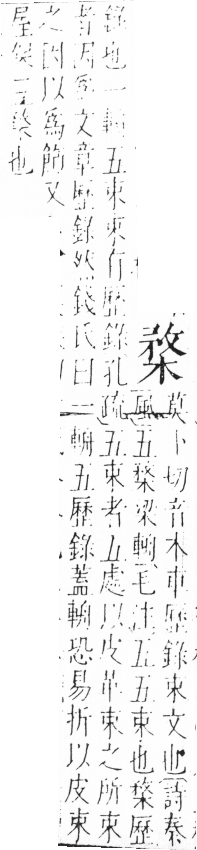 楘
莫卜切音木車歷錄束文也詩秦
風五楘梁輈毛注五五束也楘歷
錄也一輈五束束有歷錄孔疏五束者五處以皮革束之所束
者因爲文章歷錄然錢氏曰一輈五歷錄蓋輈恐易折以皮束
之因以爲飾又
屋也